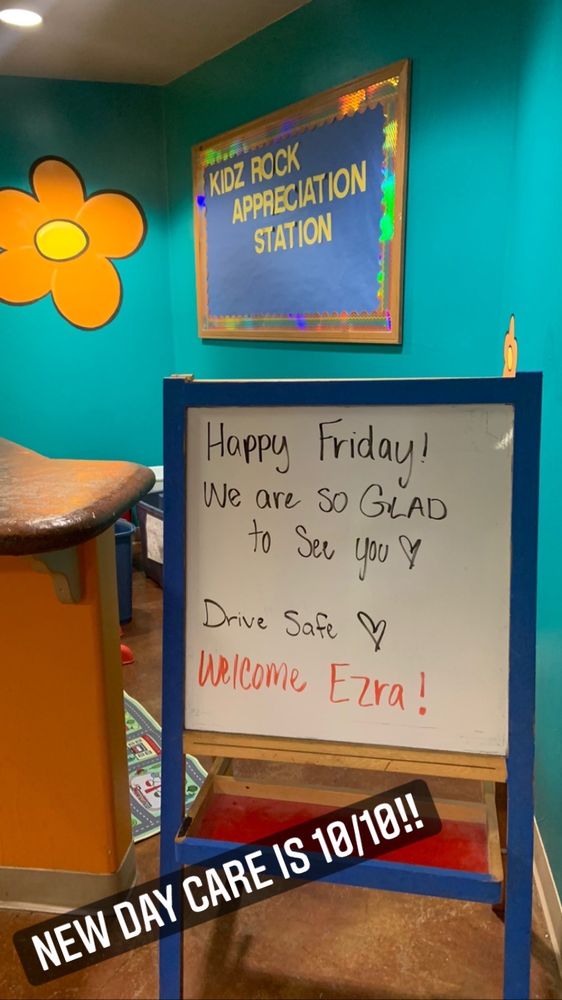 KIDZ ROCK
APPRECIATION
STATION
Happy Friday!
We are so GLAD
to See you ♡
Drive Safe ♡
Welcome Ezra!
NEW DAY CARE IS 10/10!!